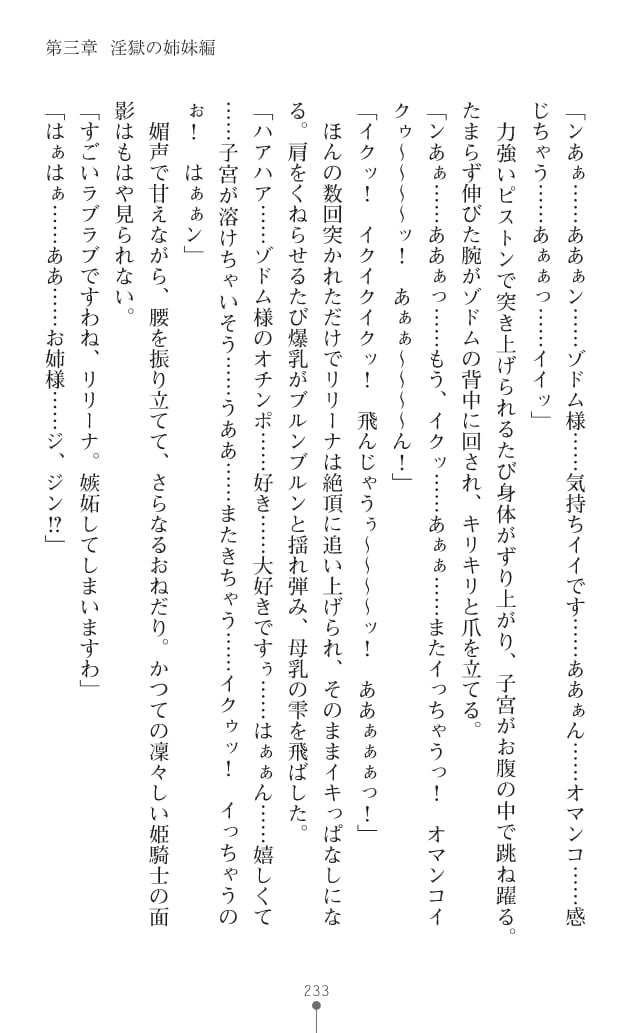 第三章 淫獄の姉妹編
「ンあぁ……ああぁン……ゾドム様……気持ちイイです……ああぁん……オマンコ……感
じちゃう……あぁぁっ……イイッ」
力強いピストンで突き上げられるたび身体がずり上がり、子宮がお腹の中で跳ね躍る。
たまらず伸びた腕がゾドムの背中に回され、キリキリと爪を立てる。
「ンあぁ……ああぁっ……もう、イクッ……あぁぁ……またイっちゃうっ！ オマンコイ
クゥ～～～～ッ！ あぁぁ～～～～ん！」
「イクッ！ イクイクイクッ！ 飛んじゃうぅ～～～～ッ！ ああぁぁぁっ！」
ほんの数回突かれただけでリリーナは絶頂に追い上げられ、そのままイキっぱなしにな
る。肩をくねらせるたび爆乳がブルンブルンと揺れ弾み、母乳の雫を飛ばした。
「ハアハア……ゾドム様のオチンポ……好き……大好きですぅ……はぁぁん……嬉しくて
……子宮が溶けちゃいそう……うああ……またきちゃう……イクゥッ！ イっちゃうの
ぉ！ はぁぁン」
媚声で甘えながら、腰を振り立てて、さらなるおねだり。かつての凜々しい姫騎士の面
影はもはや見られない。
「すごいラブラブですわね、リリーナ。嫉妬してしまいますわ」
「はぁはぁ……ああ……お姉様……ジ、ジン!?」
233